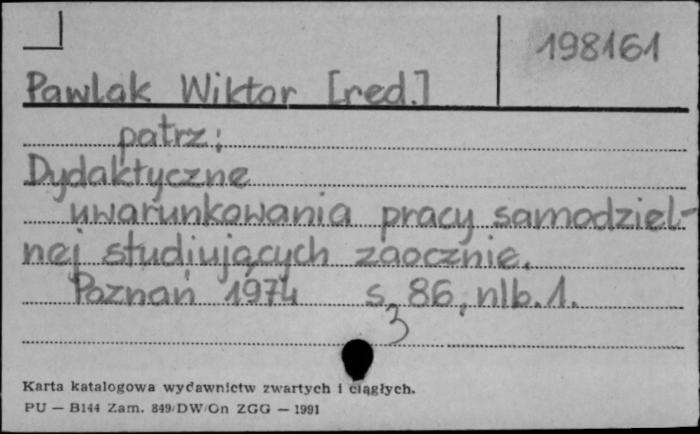 198161
Pawlak Wiktor [red.]
patrz:
Dydaktyczne
uwarunkowania pracy samodziel-
nej studiujących zaocznie.
Poznań 1974 s. 86, nlb. 1.
3
Karta katalogowa wydawnictw zwartych i ciągłych.
PU — B144 Zam. 849/DW/Gn ZGG — 1991